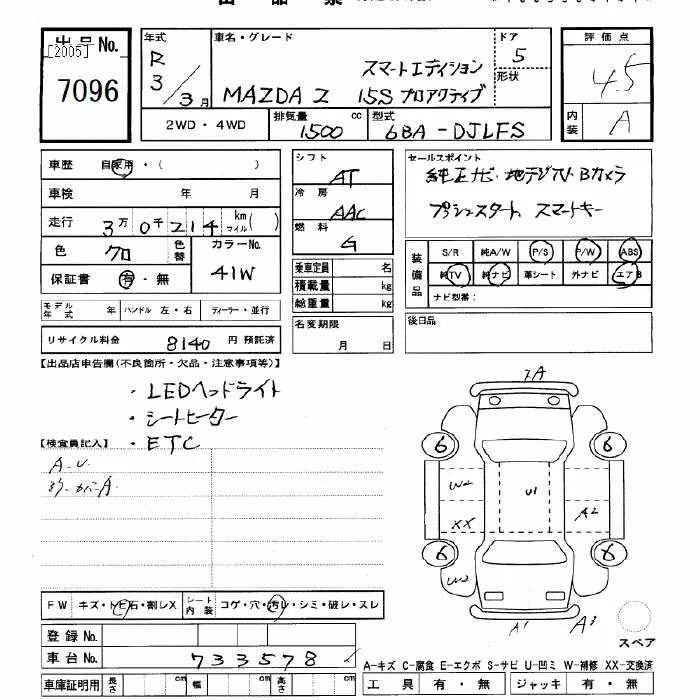 出品No.
[2005]
7096
年式
R
3/3月
車名・グレード
スマートエディション
MAZDA2 15S プロアクティブ
ドア
5
形状
評価点
4.5
内装
A
2WD・4WD
排気量
1500 cc
型式
6BA-DJLFS
車歴 自家用・( )
車検 年 月
走行 3万0千214 km マイル( )
色 クロ 色替
カラーNo.
41W
保証書 有・無
モデル年式 年 ハンドル 左・右 ディーラー・並行
リサイクル料金 8140 円 預託済
シフト
AT
冷房
AAC
燃料
G
乗車定員 名
積載量 kg
総重量 kg
名変期限
月 日
セールスポイント
純正ナビ・地デジTV・Bカメラ
プッシュスタート、スマートキー
装備品
S/R 純A/W P/S P/W ABS
純TV 純ナビ 革シート 外ナビ エアB
ナビ型番:
後日品
【出品店申告欄(不良箇所・欠品・注意事項等)】
・LEDヘッドライト
・シートヒーター
・ETC
【検査員記入】
A.U.
7A
6 6
W2 U1 A2
XX
6 6
W2
A1 A3
スペア
FW キズ・トビ石・割レX
シート内装 コゲ・穴・汚レ・シミ・破レ・スレ
登録No.
車台No. 733578
車庫証明用 長さ cm 幅 cm 高さ cm
A-キズ C-腐食 E-エクボ S-サビ U-凹ミ W-補修 XX-交換済
工具 有・無 ジャッキ 有・無